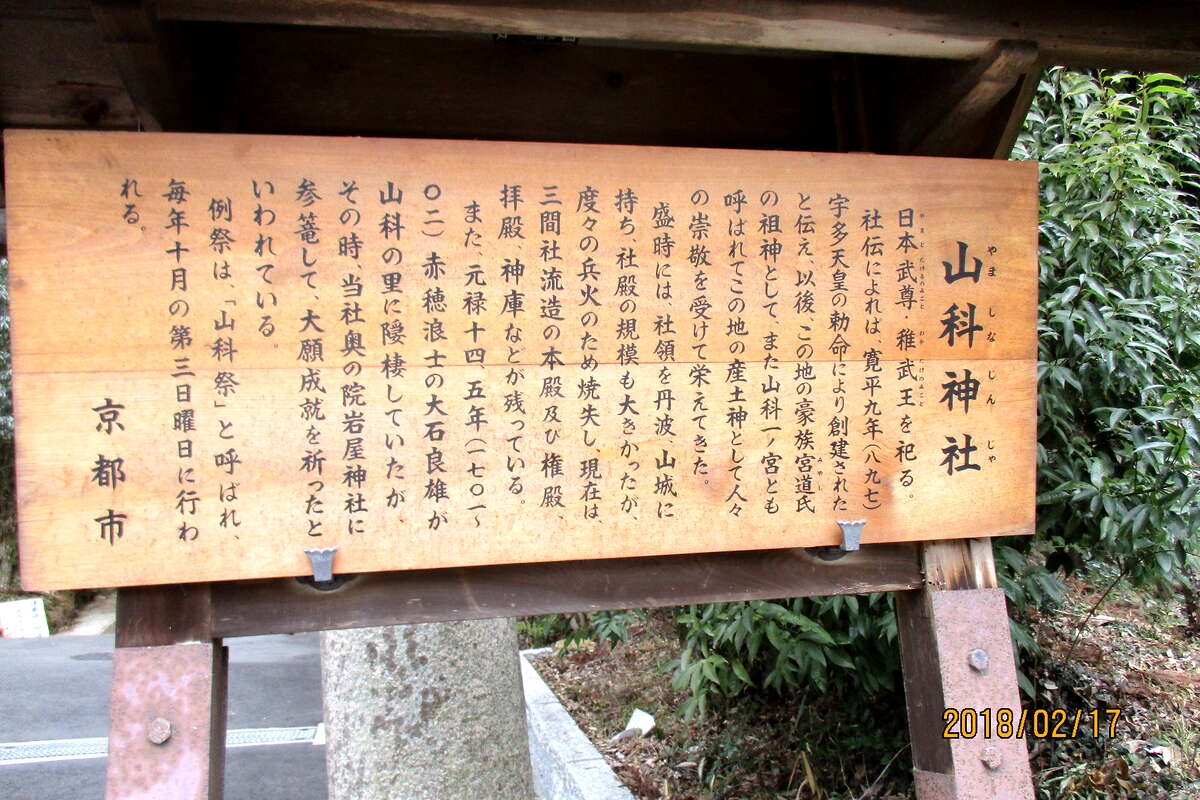 山科神社
やましなじんじゃ
日本武尊・稚武王を祀る。
やまとたけるのみこと わかたけのみこと
社伝によれば、寛平九年(八九七)
宇多天皇の勅命により創建された
と伝え、以後、この地の豪族宮道氏
みやじ
の祖神として、また山科一ノ宮とも
呼ばれてこの地の産土神として人々
の崇敬を受けて栄えてきた。
盛時には、社領を丹波、山城に
持ち、社殿の規模も大きかったが、
度々の兵火のため焼失し、現在は、
三間社流造の本殿及び権殿、
拝殿、神庫などが残っている。
また、元禄十四、五年(一七〇一~
〇二)赤穂浪士の大石良雄が
山科の里に隠棲していたが、
その時、当社奥の院岩屋神社に
参篭して、大願成就を祈ったと
いわれている。
例祭は、「山科祭」と呼ばれ、
毎年十月の第三日曜日に行わ
れる。
京都市
2018/02/17